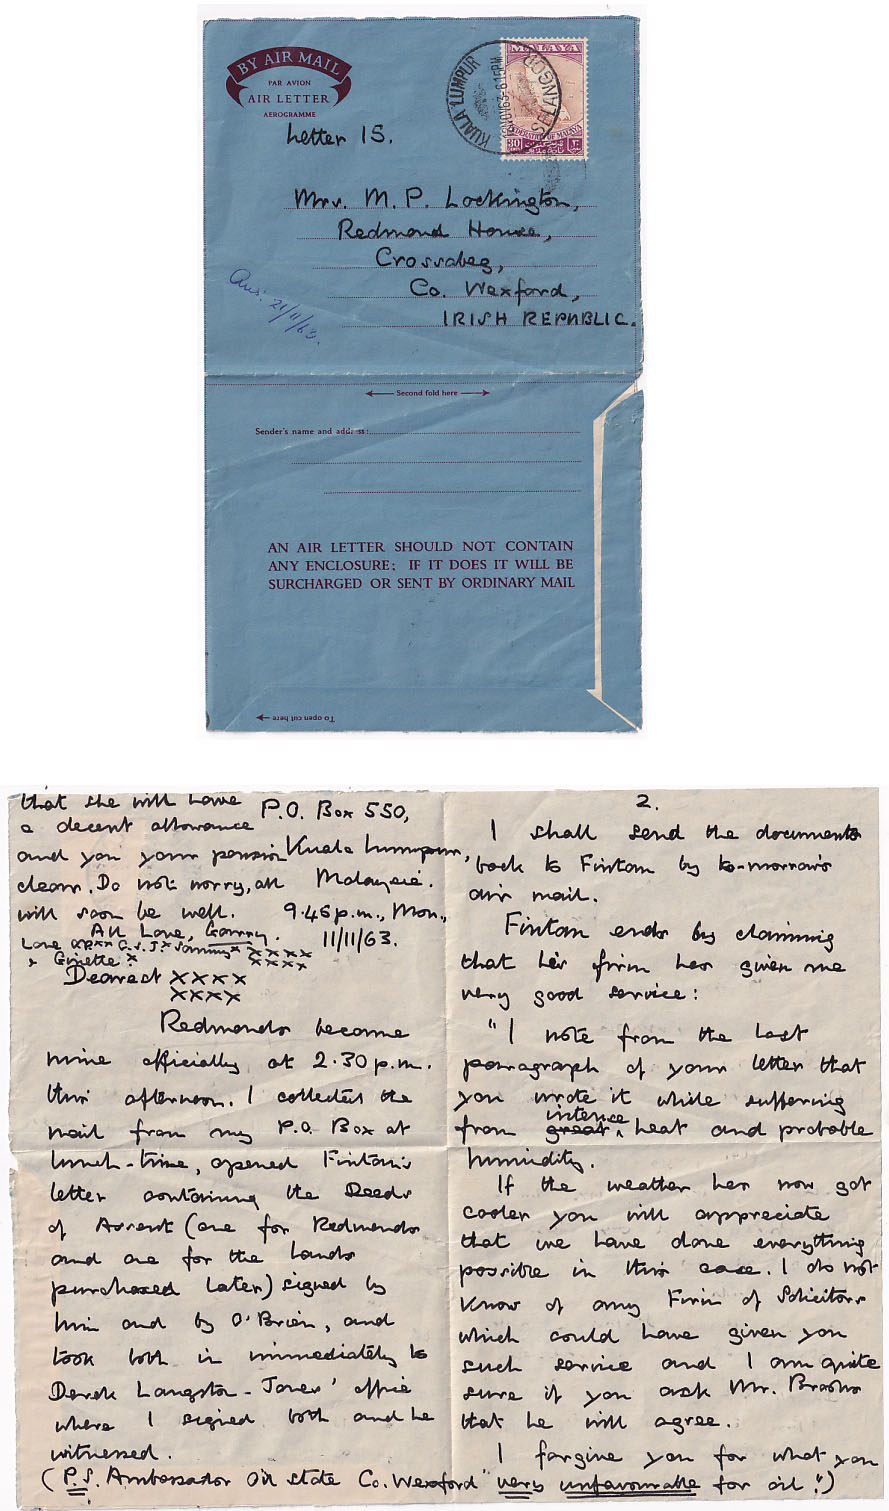 BY AIR MAIL
PAR AVION
AIR LETTER
AEROGRAMME
Letter 15.
KUALA LUMPUR
SELANGOR
MALAYA
FEDERATION OF MALAYA
30
Mrs. M. P. Lockington,
Redmond House,
Crossabeg,
Co. Wexford,
IRISH REPUBLIC.
Ans: 21/11/63.
Second fold here
Sender's name and address:
AN AIR LETTER SHOULD NOT CONTAIN
ANY ENCLOSURE; IF IT DOES IT WILL BE
SURCHARGED OR SENT BY ORDINARY MAIL
To open cut here
that she will have
a decent allowance
and you your pension
clear. Do not worry, all
will soon be well.
All Love, Garry.
Love
& Ginette x
xxxx
xxxx
P.O. Box 550,
Kuala Lumpur,
Malaysia.
9.45 p.m., Mon.,
11/11/63.
Dearest xxxx
xxxx
Redmonds became
mine officially at 2.30 p.m.
this afternoon. I collected the
mail from my P.O. Box at
lunch-time, opened Fintan's
letter containing the Deeds
of Assent (one for Redmonds
and one for the lands
purchased later) signed by
him and by O'Brien, and
took both in immediately to
Derek Langston-Jones' office
where I signed both and he
witnessed.
(P.S. Ambassador Oil state Co. Wexford "very unfavourable for oil".)
2.
I shall send the documents
back to Fintan by to-morrow's
air mail.
Fintan ends by claiming
that his firm has given me
very good service:
"I note from the last
paragraph of your letter that
you wrote it while suffering
from great intense heat and probable
humidity.
If the weather has now got
cooler you will appreciate
that we have done everything
possible in this case. I do not
know of any Firm of Solicitors
which could have given you
such service and I am quite
sure if you ask Mr. Brooks
that he will agree.
I forgive you for what you